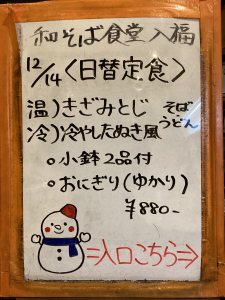 和そば食堂 入福
12/14〈日替定食〉
温)きざみとじ そば
冷)冷やしたぬき風 うどん
○小鉢2品付
○おにぎり(ゆかり)
¥880-
⇒入口こちら⇒